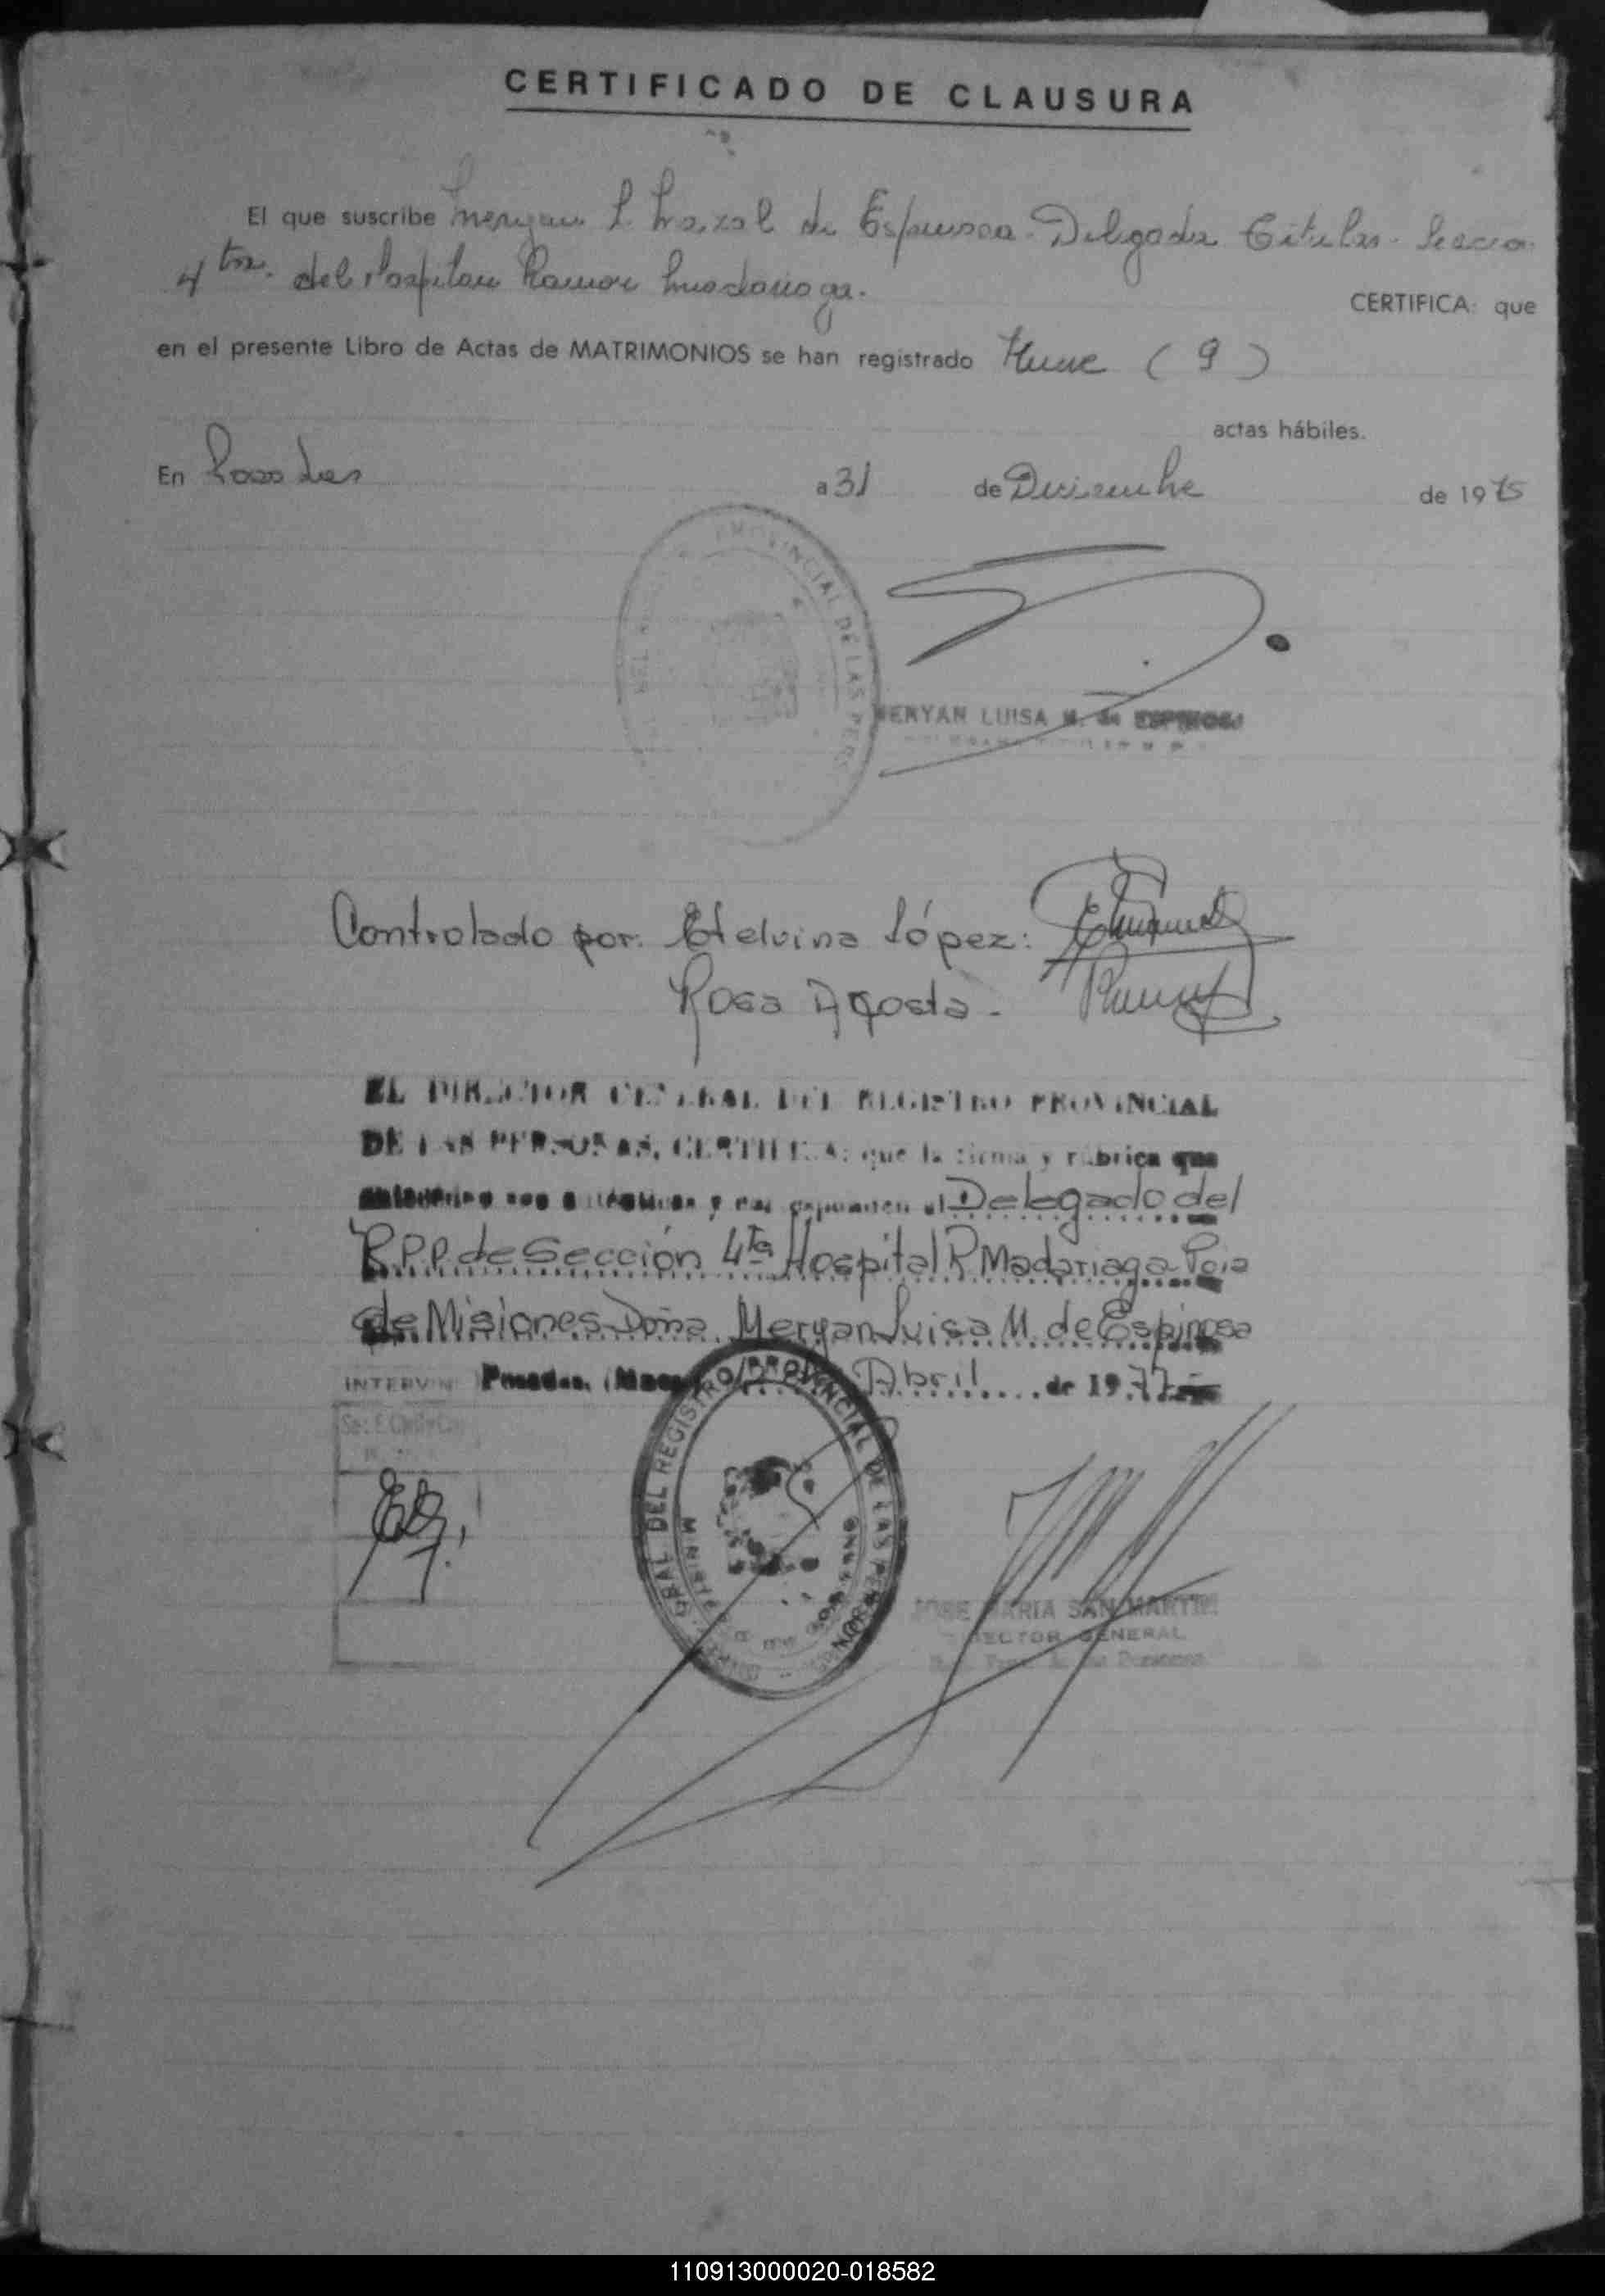 CERTIFICADO DE CLAUSURA
El que suscribe Meryan L. de Espinosa - Delegada Titular - Sección
4ta. del Hospital Ramon Madariaga.
CERTIFICA: que
en el presente Libro de Actas de MATRIMONIOS se han registrado Nueve ( 9 )
actas hábiles.
En Posadas a 31 de Diciembre de 1975
PROVINCIAL DE LAS PERS
MERYAN LUISA M. de ESPINOSA
Controlado por: Etelvina López:
Rosa Acosta.
EL DIRECTOR GENERAL DEL REGISTRO PROVINCIAL
DE LAS PERSONAS, CERTIFICA: que la firma y rúbrica que
anteceden son auténticas y corresponden al Delegado del
R.P.P. de Sección 4ta Hospital R. Madariaga Pcia
de Misiones Doña Meryan Luisa M. de Espinosa
INTERVINO Posadas, Abril de 1977
GRAL. DEL REGISTRO PROVINCIAL DE LAS PERSONAS
JOSE MARIA SAN MARTIN
DIRECTOR GENERAL
110913000020-018582